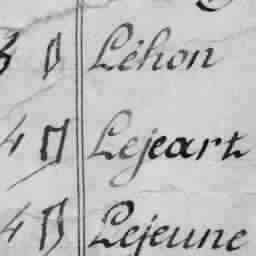 Léhon
4 Lejeart
4 Lejeune